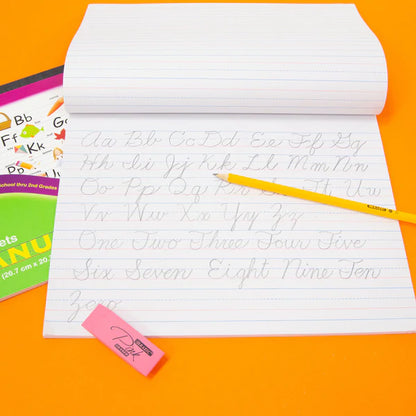 Aa Bb Cc Dd Ee Ff Gg
Hh Ii Jj Kk Ll Mm Nn
Oo Pp Qq Tt Uu
Vv Ww Xx Yy Zz
One Two Three Four Five
Six Seven Eight Nine Ten
Zero
Bb
Ff
Kk
Pp
school thru 2nd Grades
ets
ANU
(26.7 cm x 20.
Pink